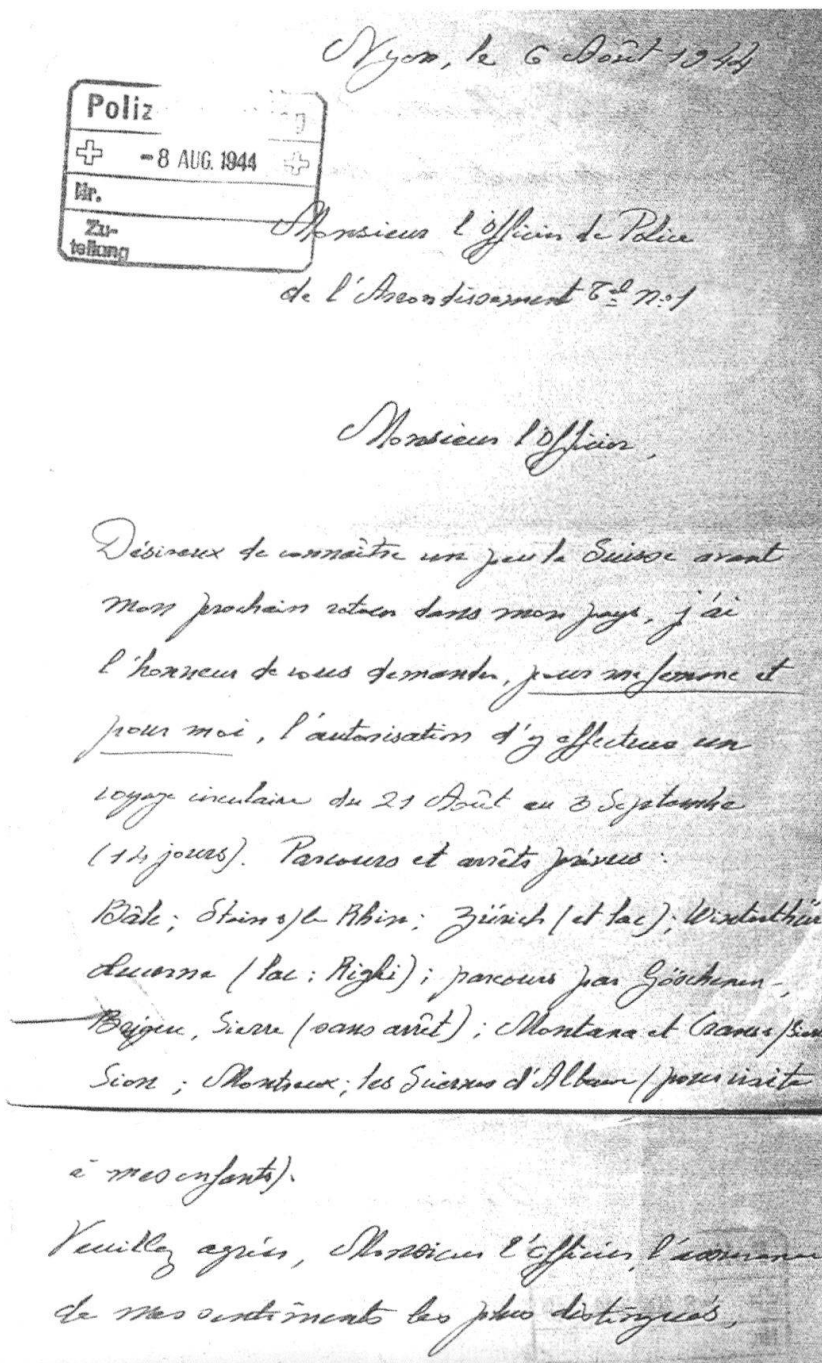 Nyon, le 6 Août 1944
Poliz
- 8 AUG. 1944
Nr.
Zu-
teilung
Monsieur l'Officier de Police
de l'Arrondissement Tal n:o 1
Monsieur l'Officier,
Désireux de connaître un peu la Suisse avant
mon prochain retour dans mon pays, j'ai
l'honneur de vous demander, pour ma femme et
pour moi, l'autorisation d'y effectuer un
voyage circulaire du 21 Août au 3 Septembre
(14 jours). Parcours et arrêts prévus :
Bâle ; Stein s/le Rhin ; Zürich (et lac) ; Winterthür
Lucerne (lac : Righi) ; parcours par Göschenen-,
Brigue, Sierre (sans arrêt) ; Montana et Crans s/Sierre
Sion ; Montreux ; les Sciernes d'Albeuve (pour visite
à mes enfants).
Veuillez agréer, Monsieur l'Officier, l'assurance
de mes sentiments les plus distingués,